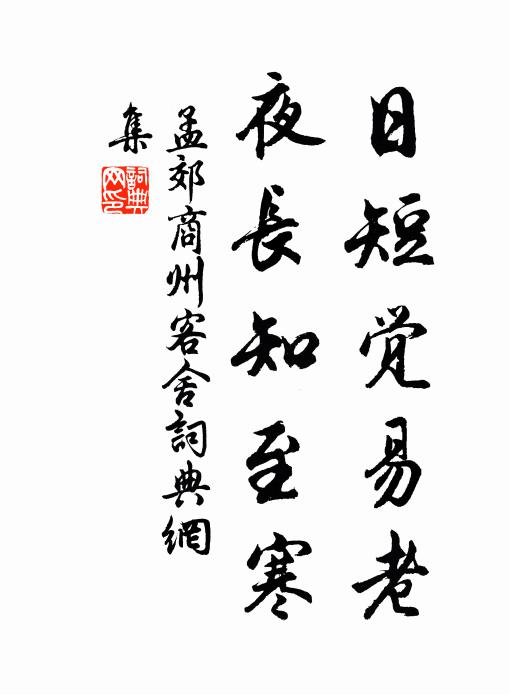 日短觉易老
夜長知至寒
孟郊商州客舍詞典網
集
詞典
网印